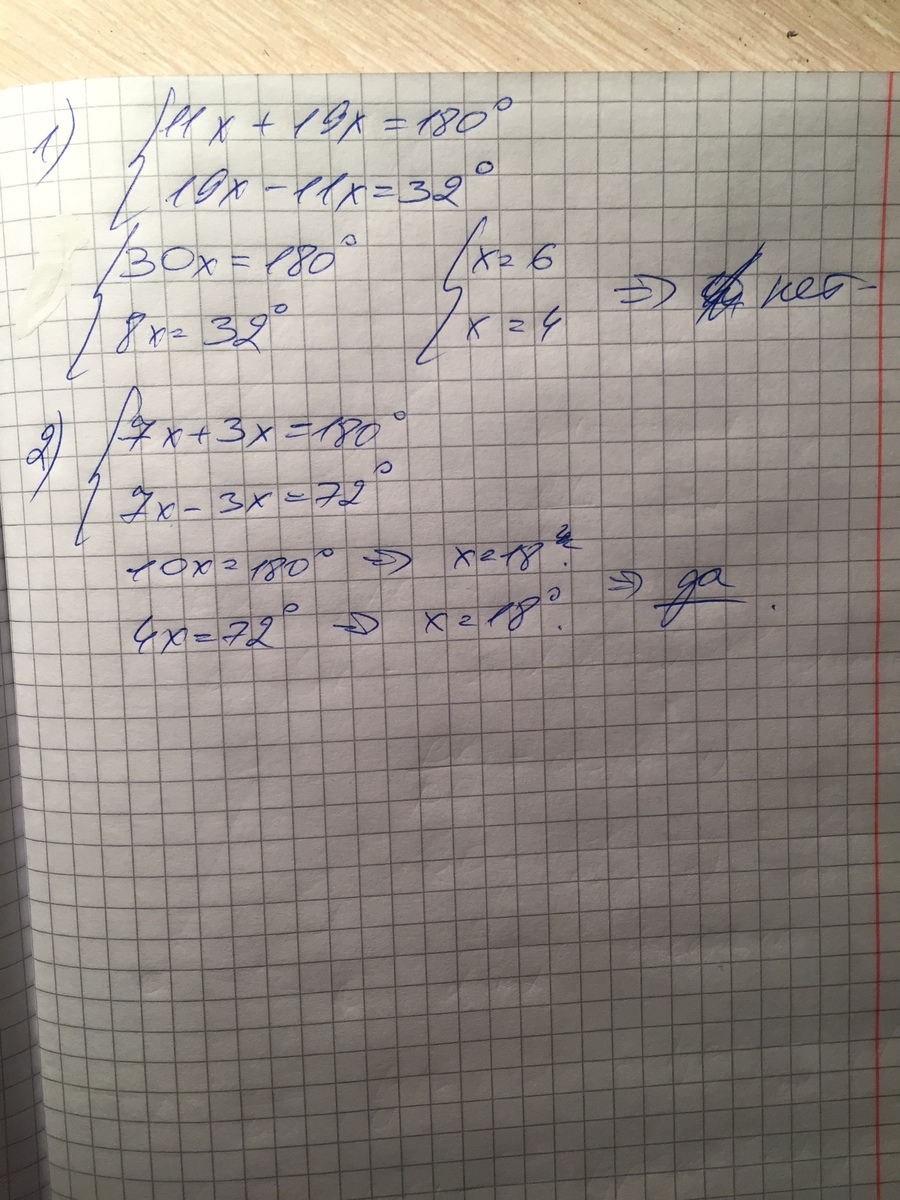 1) 11x + 19x = 180°
19x - 11x = 32°
30x = 180° x = 6 ⇒ нет
8x = 32° x = 4
2) 7x + 3x = 180°
7x - 3x = 72°
10x = 180° ⇒ x = 18
4x = 72° ⇒ x = 18°. ⇒ да.